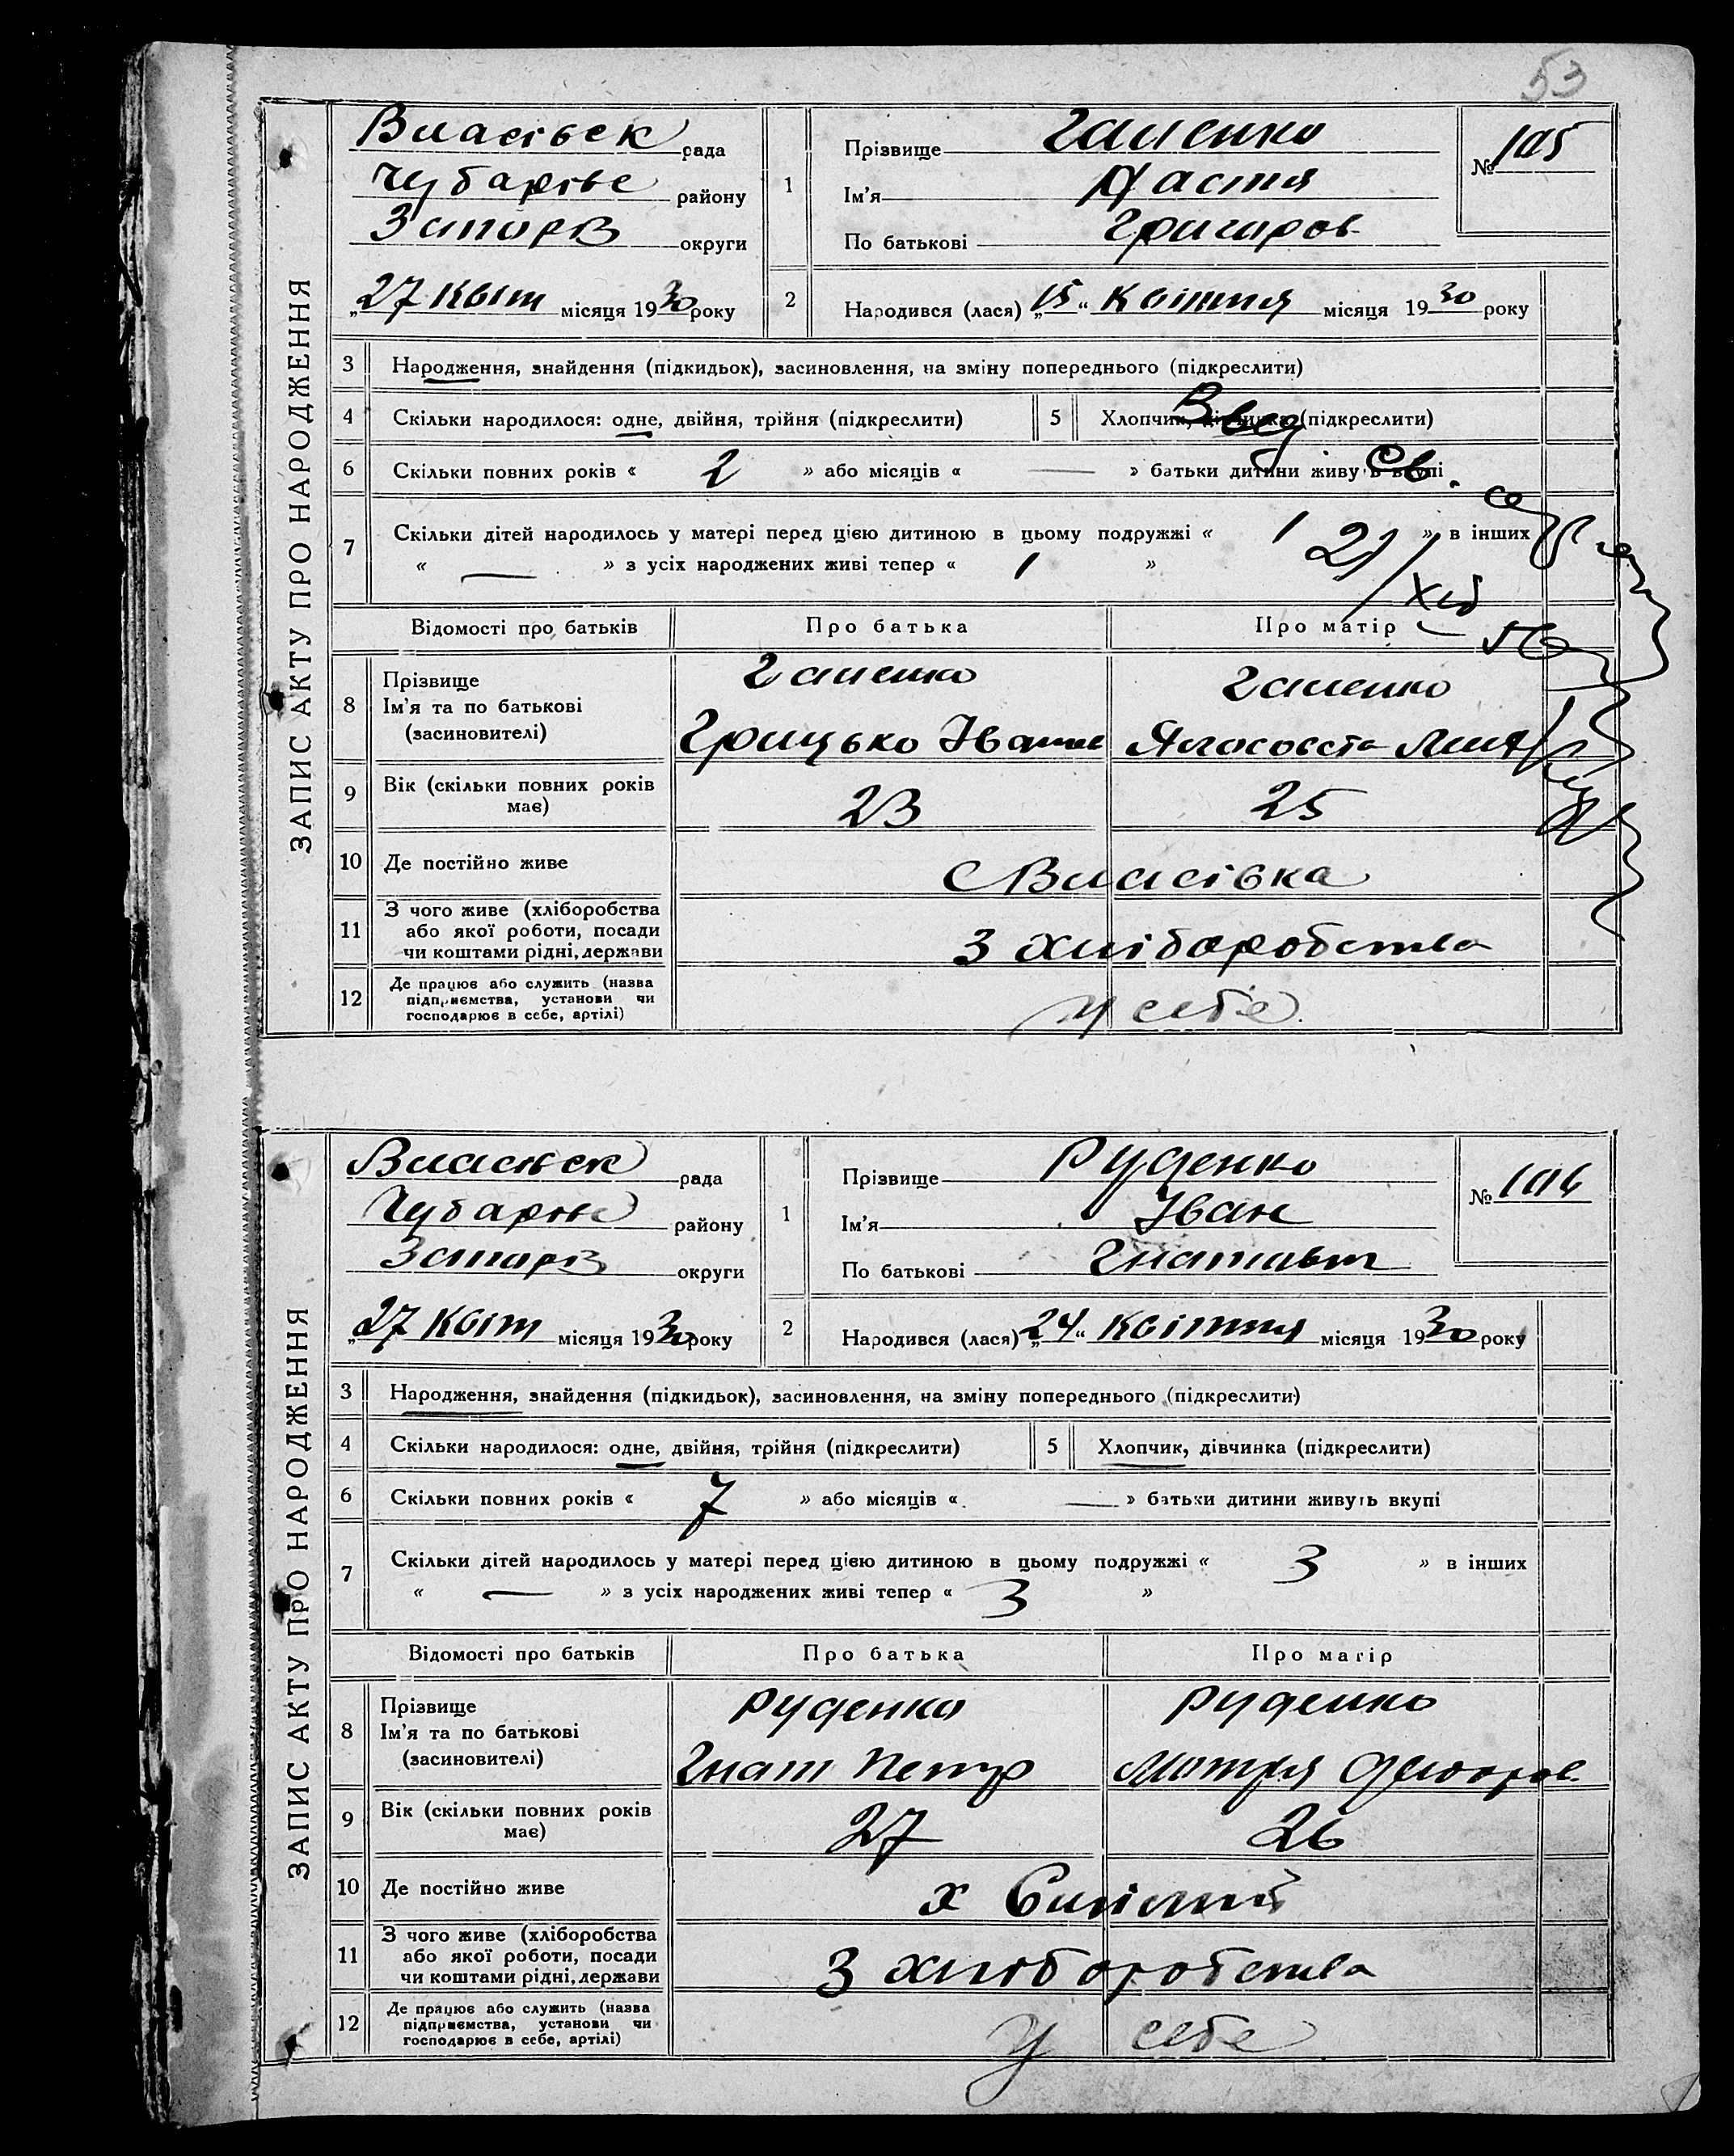 53
ЗАПИС АКТУ ПРО НАРОДЖЕННЯ
Власівськ рада
Чубарівс району
Запоріз округи
„27 Квіт місяця 1930 року
1 Прізвище Галенко
Ім'я Настя
По батькові Григоров
№ 105
2 Народився (лася) „15“ Квітня місяця 1930 року
3 Народження, знайдення (підкидьок), засиновлення, на зміну попереднього (підкреслити)
4 Скільки народилося: одне, двійня, трійня (підкреслити)
5 Хлопчик, дівчинка (підкреслити)
6 Скільки повних років « 2 » або місяців « — » батьки дитини живуть вкупі
7 Скільки дітей народилось у матері перед цією дитиною в цьому подружжі « 1 » в інших
« — » з усіх народжених живі тепер « 1 »
Відомості про батьків Про батька Про матір
8 Прізвище Ім'я та по батькові (засиновителі)
Галенко Галенко
Грицько Іванов
9 Вік (скільки повних років має) 23 25
10 Де постійно живе с Власівка
11 З чого живе (хліборобства або якої роботи, посади чи коштами рідні, держави
З хліборобства
12 Де працює або служить (назва підприємства, установи чи господарює в себе, артілі)
У себе
ЗАПИС АКТУ ПРО НАРОДЖЕННЯ
Власівск рада
Чубарівс району
Запоріз округи
„27 Квіт місяця 1930 року
1 Прізвище Руденко
Ім'я Іван
По батькові Гнатович
№ 106
2 Народився (лася) „24“ Квітня місяця 1930 року
3 Народження, знайдення (підкидьок), засиновлення, на зміну попереднього (підкреслити)
4 Скільки народилося: одне, двійня, трійня (підкреслити)
5 Хлопчик, дівчинка (підкреслити)
6 Скільки повних років « 7 » або місяців « — » батьки дитини живуть вкупі
7 Скільки дітей народилось у матері перед цією дитиною в цьому подружжі « 3 » в інших
« — » з усіх народжених живі тепер « 3 »
Відомості про батьків Про батька Про матір
8 Прізвище Ім'я та по батькові (засиновителі)
Руденко Руденко
Гнат Петр Мотря Федоров
9 Вік (скільки повних років має) 27 26
10 Де постійно живе х
11 З чого живе (хліборобства або якої роботи, посади чи коштами рідні, держави
З хліборобства
12 Де працює або служить (назва підприємства, установи чи господарює в себе, артілі)
У себе